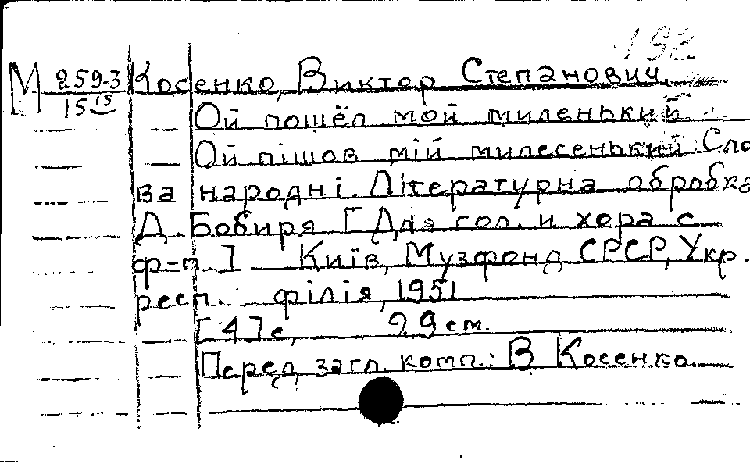 192
М 259-3 Косенко, Виктор Степанович.
15 15
Ой пошёл мой миленький.
Ой пішов мій милесенький. Сло
ва народні. Літературна обробка
Д. Бобиря [Для гол. и хора с
ф-п.] Київ, Музфонд СРСР, Укр.
респ. філія, 1951
[4] с. 29 см.
Перед загл. комп.: В Косенко